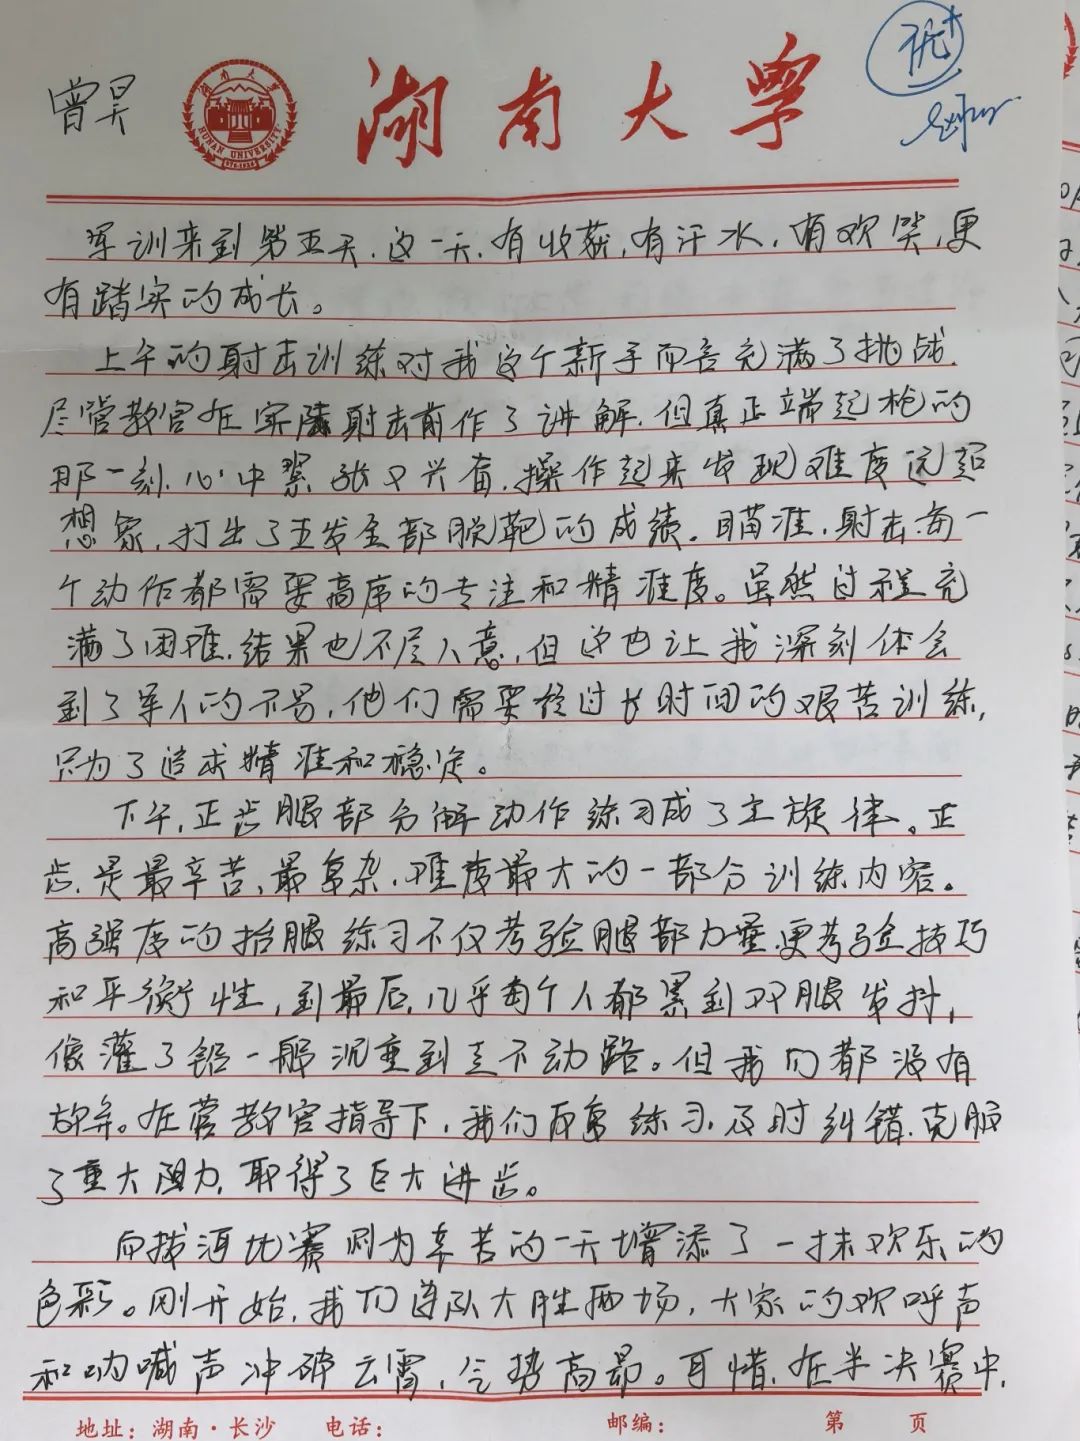 曾昊
湖南大学
HUNAN UNIVERSITY
优+
军训来到第五天,这一天,有收获,有汗水,有欢笑,更
有踏实的成长。
上午的射击训练对我这个新手而言充满了挑战,
尽管教官在实际射击前作了讲解,但真正端起枪的
那一刻,心中紧张又兴奋,操作起来发现难度远超
想象,打出了五发全部脱靶的成绩。瞄准,射击,每一
个动作都需要高度的专注和精准度。虽然过程充
满了困难,结果也不尽人意,但这也让我深刻体会
到了军人的不易,他们需要经过长时间的艰苦训练,
只为了追求精准和稳定。
下午,正步腿部分解动作练习成了主旋律。正
步,是最辛苦、最复杂、难度最大的一部分训练内容。
高强度的抬腿练习不仅考验腿部力量,更考验技巧
和平衡性,到最后,几乎每个人都累到双腿发抖,
像灌了铅一般沉重到走不动路。但我们都没有
放弃。在营教官指导下,我们反复练习,及时纠错,克服
了重大阻力,取得了巨大进步。
而拔河比赛则为辛苦的一天增添了一抹欢乐的
色彩。刚开始,我们连队大胜两场,大家的欢呼声
和呐喊声冲破云霄,气势高昂。可惜,在半决赛中,
地址:湖南·长沙 电话: 邮编: 第 页